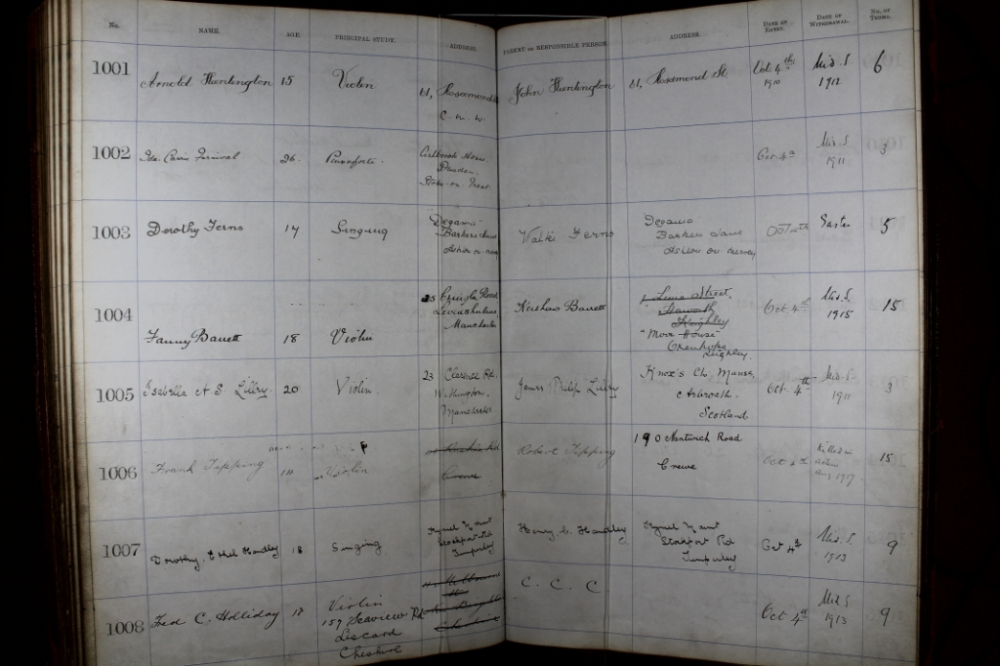 No. NAME. AGE. PRINCIPAL STUDY. ADDRESS. PARENT OR RESPONSIBLE PERSON. ADDRESS. DATE OF ENTRY. DATE OF WITHDRAWAL. NO. OF TERMS.
1001 Arnold Huntington 15 Violin 61, Rosamond St John Huntington 61, Rosamond St Oct 4th 1910 Mid. S 1912 6
C. on. M.
1002 26 Pianoforte Oct 4th Mid. S 1911 3
Stoke on Trent
1003 Dorothy Ferns 17 Singing Ferns Oct 4th Easter 5
Barkers Lane
Ashton on Mersey
1004 Fanny Barrett 18 Violin Road Kershaw Barrett Street Oct 4th Mid. S. 1915 15
Levenshulme
Manchester
Haworth
Keighley
"Moor House"
Oxenhope
Keighley.
1005 Isabella A S Lilley 20 Violin. 23 Clarence Rd. James Philip Lilley Knox's Ch. Manse Oct 4th Mid-S. 1911 3
Withington,
Manchester
Arbroath.
Scotland
1006 Frank Tipping 14 Violin Robert Tipping 190 Nantwich Road Oct 4th Killed in action Aug 1917 15
Crewe
Crewe
1007 Dorothy Ethel Handley 18 Singing Harry C. Handley Oct 4th Mid. S. 1913 9
Stockport Rd
Timperley
Stockport Rd
Timperley
1008 Fred C. Holliday 17 Violin C. C. C Oct 4th Mid S 1913 9
159 Seaview Rd
Liscard
Cheshire